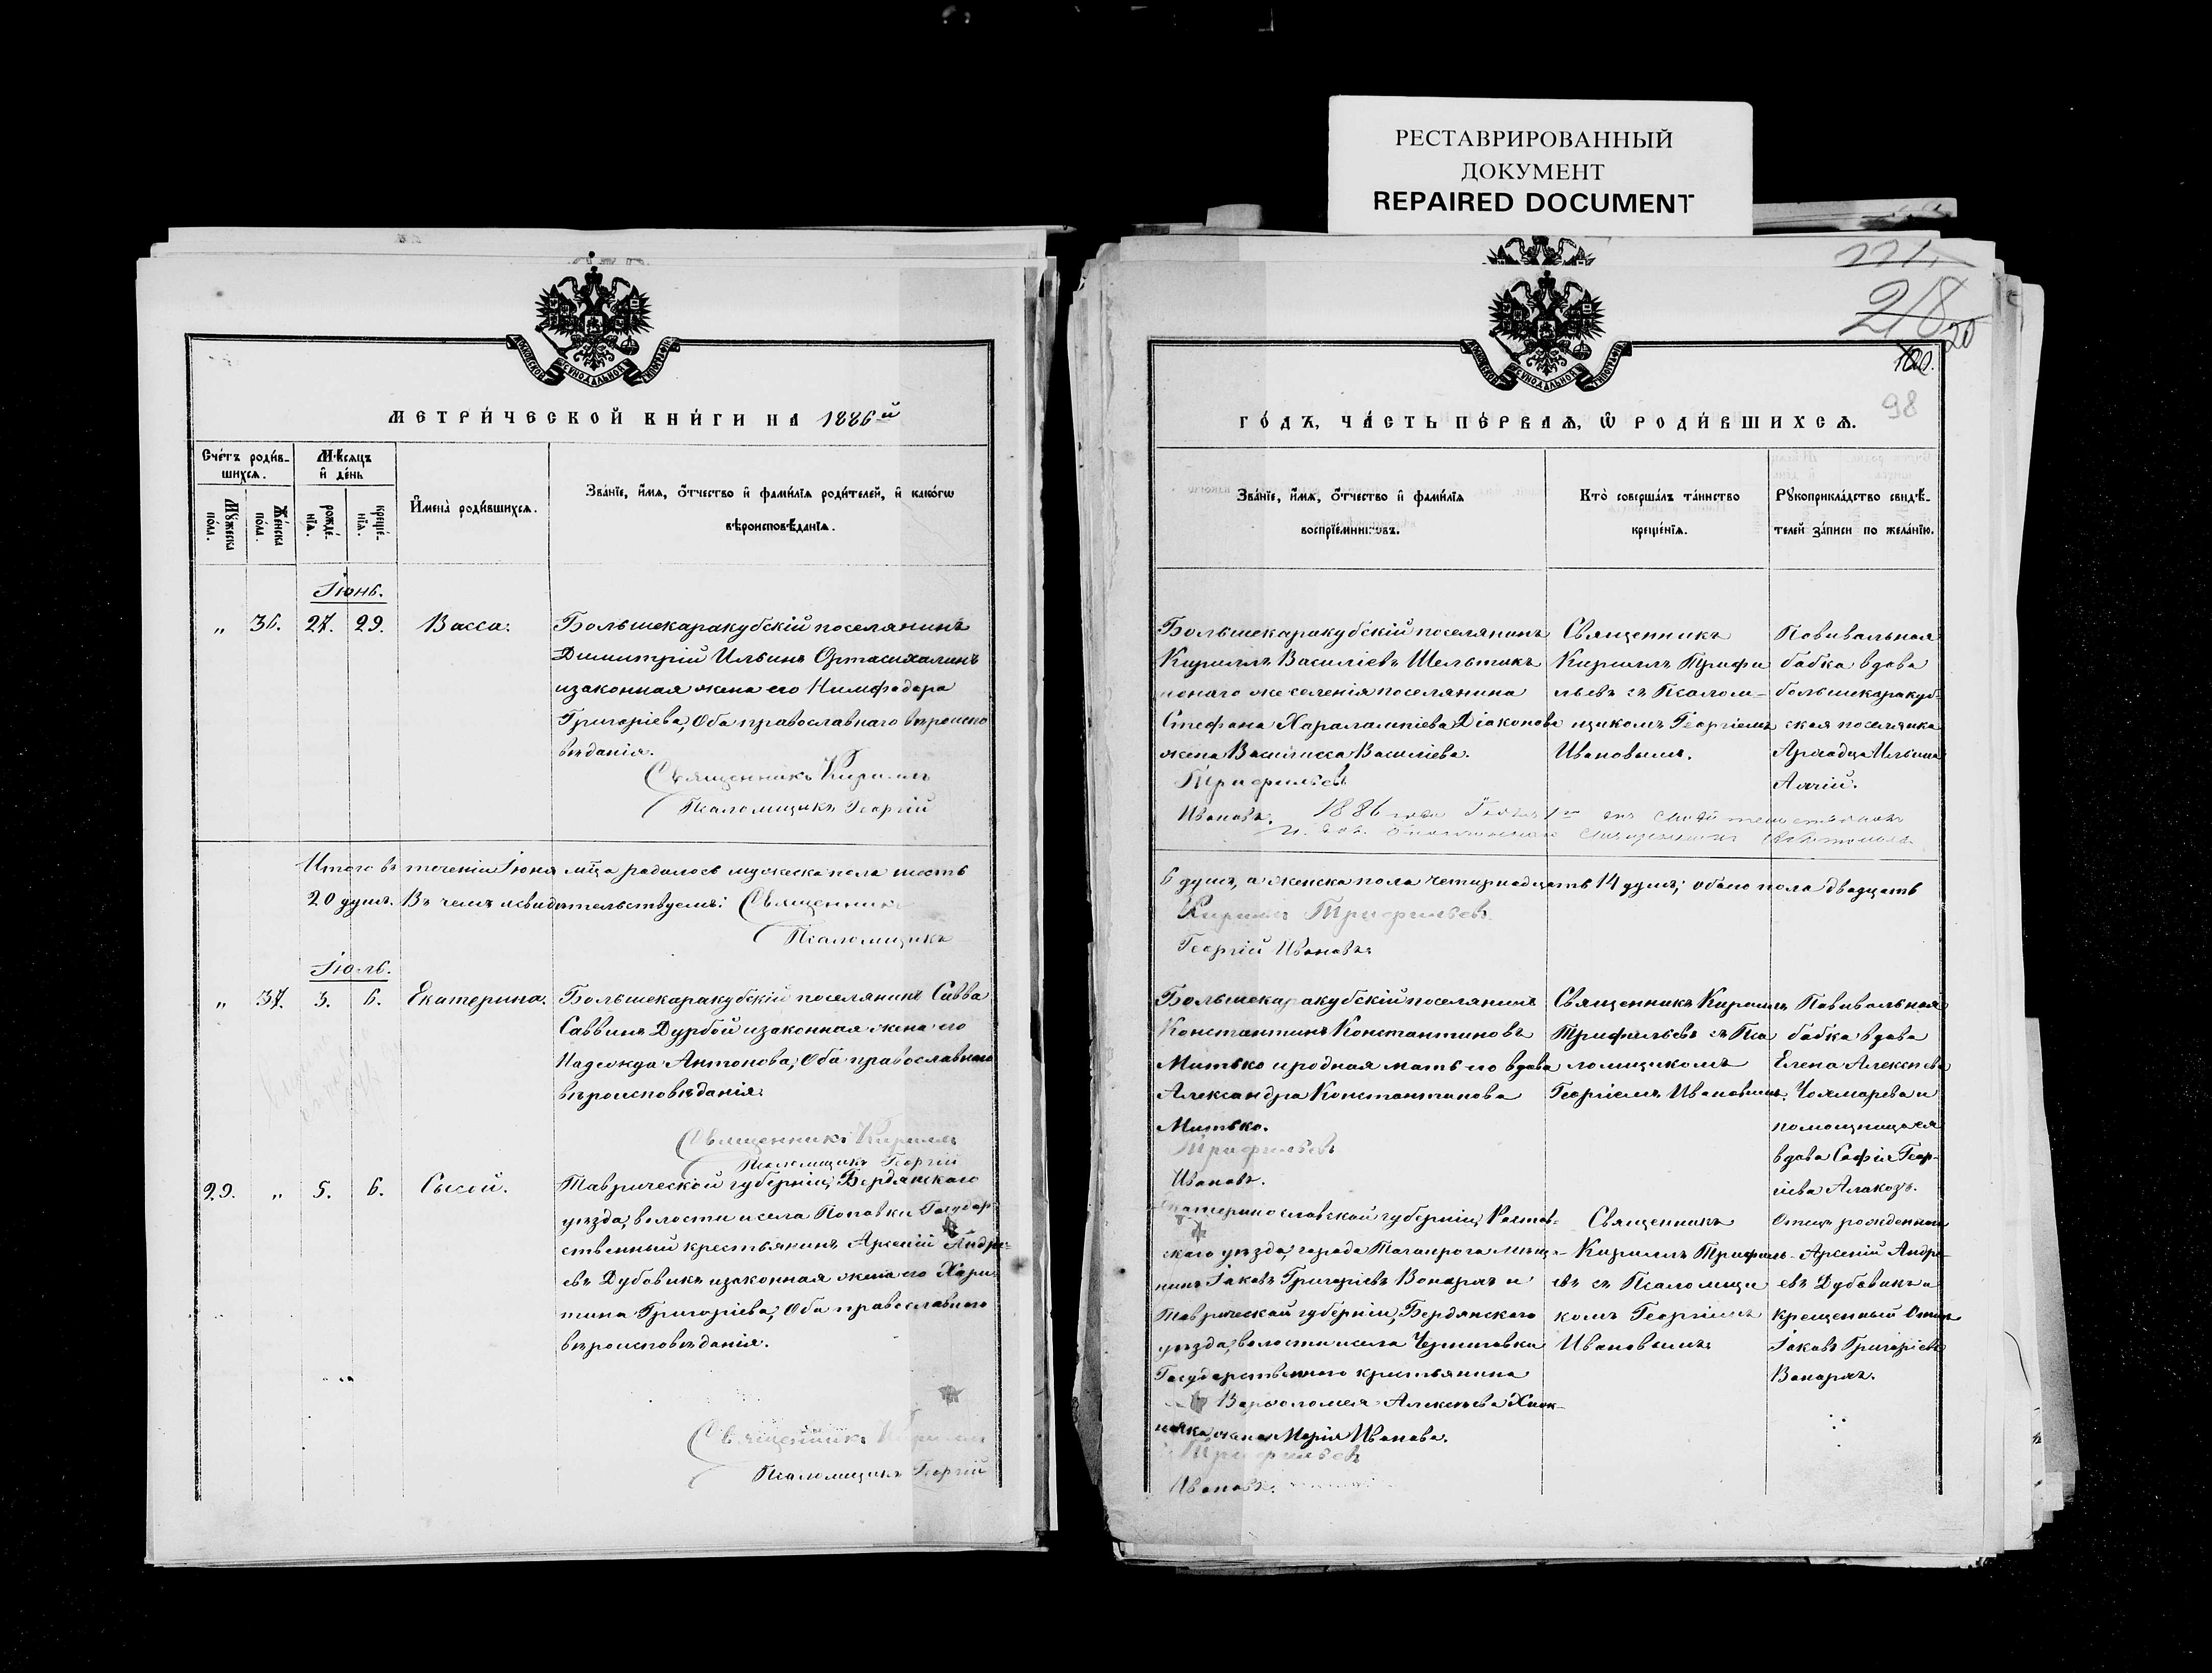 РЕСТАВРИРОВАННЫЙ
ДОКУМЕНТ
REPAIRED DOCUMENT
МЕТРИ́ЧЕСКОЙ КНИ́ГИ НА 1886й
Сче́тъ роди́в-
шихсѧ.
Мѣ́сѧцъ
и҆ де́нь
Мꙋ́жеска
по́ла.
Же́нска
по́ла.
рожде́-
нїѧ.
креще́-
нїѧ.
И҆мена̀ роди́вшихсѧ.
Зва́нїе, и҆́мѧ, ѻ҆́тчество и҆ фами́лїѧ роди́телей, и҆ како́гѡ
вѣроисповѣ́данїѧ.
Іюнь.
„ 36. 27. 29. Васса.
Большекаракубскій поселянинъ
Димитрій Ильинъ Ортасихалинъ
и законная жена его Нимфодора
Григоріева, Оба православнаго вѣроиспо
вѣданія.
Священникъ Кириллъ
Псаломщикъ Георгій
Итого въ теченіи Іюня мца родилось мужеска пола шесть
20 душъ. Въ чемъ и свидѣтельствуемъ: Священникъ
Псаломщикъ
Іюль.
„ 37. 3. 6. Екатерина.
Большекаракубскій поселянинъ Савва
Саввинъ Дурбой и законная жена его
Надежда Антонова, Оба православнаго
вѣроисповѣданія.
Священникъ Кириллъ
Псаломщикъ Георгій
29. „ 5. 6. Сысой.
Таврической губерніи, Бердянскаго
уѣзда, волости и села Поповки Государ
ственный крестьянинъ Арсеній Андре-
евъ Дубовикъ и законная жена его Хари
тина Григоріева, Оба православнаго
вѣроисповѣданія.
Священникъ Кириллъ
Псаломщикъ Георгій
218
20
98
ГО́ДЪ, ЧА́СТЬ ПЕ́РВАѦ, Ѡ҆ РОДИ́ВШИХСѦ.
Зва́нїе, и҆́мѧ, ѻ҆́тчество и҆ фами́лїѧ
воспрїе́мниковъ.
Кто̀ соверша́лъ та́инство
креще́нїѧ.
Рꙋкоприкла́дство свидѣ́-
телей за́писи по жела́нїю.
Большекаракубскій поселянинъ
Кириллъ Василіевъ Шельтикъ
и онаго же селенія поселянина
Стефана Харалампіева Діаконова
жена Василиса Василіева.
Трифильевъ
Ивановъ.
Священникъ
Кириллъ Трифи
льевъ съ Псалом-
щикомъ Георгіемъ
Ивановымъ.
Повивальная
бабка вдова
большекаракуб-
ская поселянка
Ильина
1886 года
6 душъ, а женска пола четырнадцать 14 душъ; обоего пола двадцать
Кириллъ Трифильевъ
Георгій Ивановъ.
Большекаракубскій поселянинъ
Константинъ Константиновъ
Митько и родная мать его вдова
Александра Константинова
Митько.
Трифильевъ
Ивановъ.
Священникъ Кириллъ
Трифильевъ съ Пса
ломщикомъ
Георгіемъ Ивановымъ.
Повивальная
бабка вдова
Елена Алексѣева
Чолмарева и
помощница ея
вдова Софія Геор-
гіева Алакозъ.
Екатеринославской губерніи, Ростов-
скаго уѣзда, города Таганрога мѣща-
нинъ Іаковъ Григоріевъ Вонаръ и
Таврической губерніи, Бердянскаго
уѣзда, волости и села Черниговки
Государственнаго крестьянина
Варфоломея Алексѣева
жена Марія Иванова.
Трифильевъ
Ивановъ.
Священникъ
Кириллъ Трифиль-
евъ съ Псаломщи
комъ Георгіемъ
Ивановымъ.
Отецъ рожденнаго
Арсеній Андре-
евъ Дубовикъ и
крещенный Отецъ
Іаковъ Григоріевъ
Вонаръ.